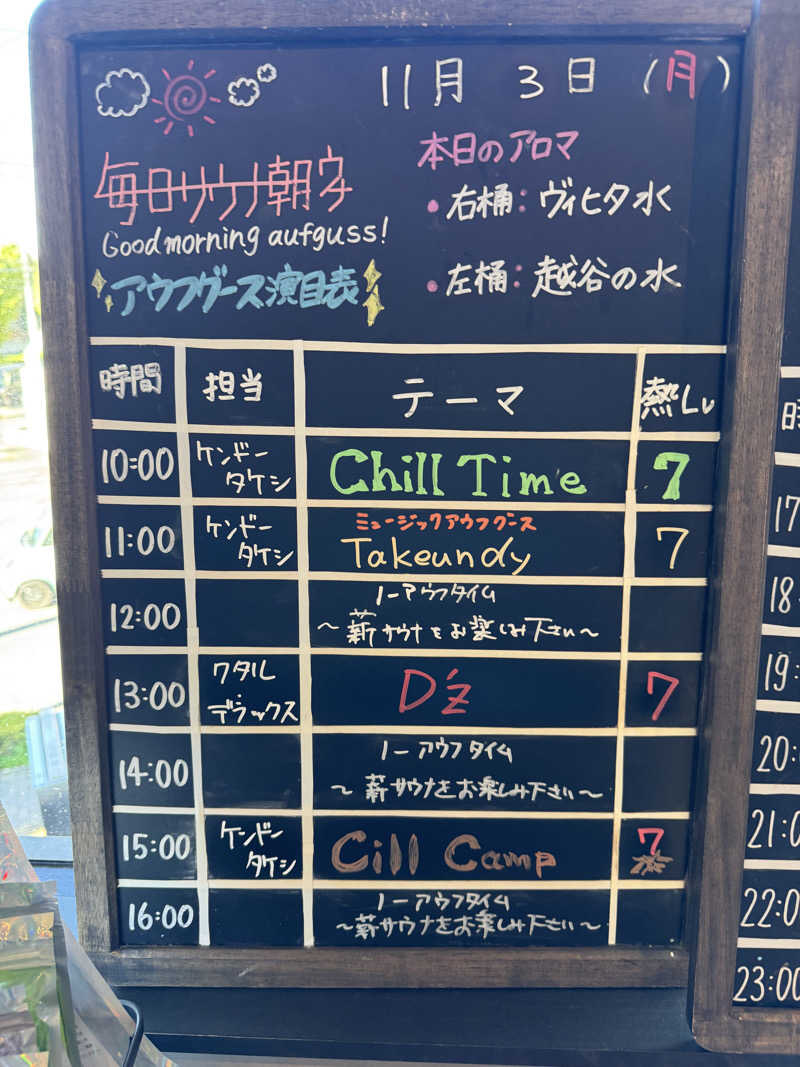 11月 3日(月)
毎日サウナ朝字
Good morning aufguss!
アウフグース演目表
本日のアロマ
・右桶:ヴィヒタ水
・左桶:越谷の水
時間 担当 テーマ 熱Lv
10:00 ケンドータケシ Chill Time 7
11:00 ケンドータケシ ミュージックアウフグース Takeundy 7
12:00 ノーアウフタイム
~薪サウナをお楽しみ下さい~
13:00 ワタル・デラックス D'z 7
14:00 ノーアウフタイム
~薪サウナをお楽しみ下さい~
15:00 ケンドータケシ Cill Camp 7
16:00 ノーアウフタイム
~薪サウナをお楽しみ下さい~
17
18
19:
20:
21:0
22:0
23:00